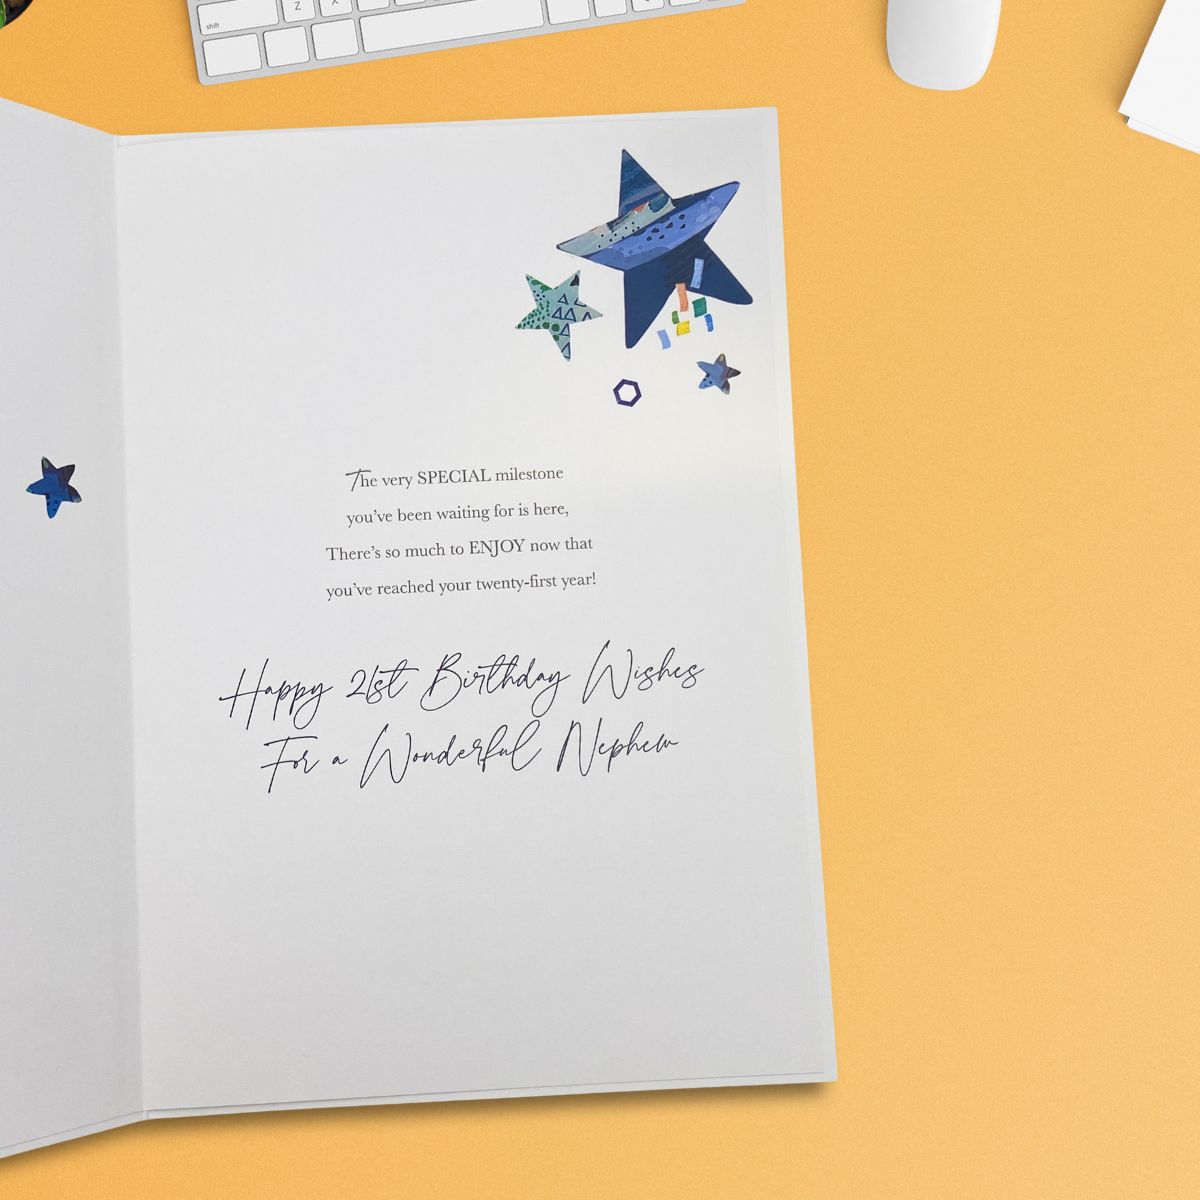 shift
Z
X
The very SPECIAL milestone
you've been waiting for is here,
There's so much to ENJOY now that
you've reached your twenty-first year!
Happy 21st Birthday Wishes
For a Wonderful Nephew